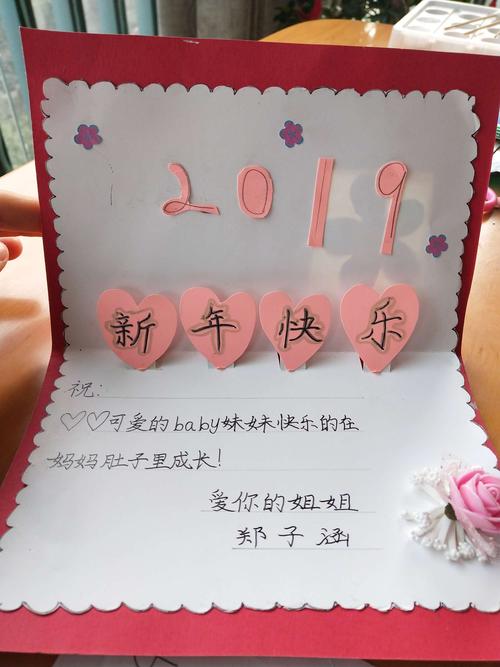 2019
新年快乐
祝:
♡♡可爱的baby妹妹快乐的在
妈妈肚子里成长!
爱你的姐姐
郑子涵